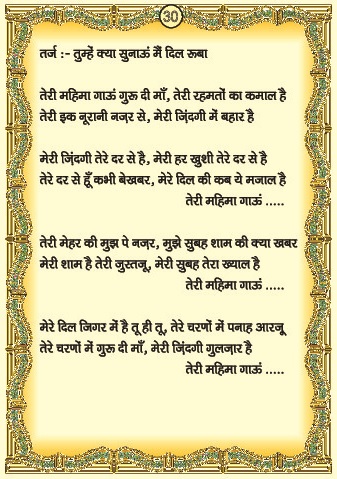 30
तर्ज :- तुम्हें क्या सुनाऊं मैं दिल रूबा
तेरी महिमा गाऊं गुरू दी माँ, तेरी रहमतों का कमाल है
तेरी इक नूरानी नज़र से, मेरी ज़िंदगी में बहार है
मेरी ज़िंदगी तेरे दर से है, मेरी हर खुशी तेरे दर से है
तेरे दर से हूँ कभी बेखबर, मेरे दिल की कब ये मजाल है
तेरी महिमा गाऊं .....
तेरी मेहर की मुझ पे नज़र, मुझे सुबह शाम की क्या खबर
मेरी शाम है तेरी जुस्तजू, मेरी सुबह तेरा ख्याल है
तेरी महिमा गाऊं .....
मेरे दिल जिगर में है तू ही तू, तेरे चरणों में पनाह आरजू
तेरे चरणों में गुरू दी माँ, मेरी ज़िंदगी गुलज़ार है
तेरी महिमा गाऊं .....